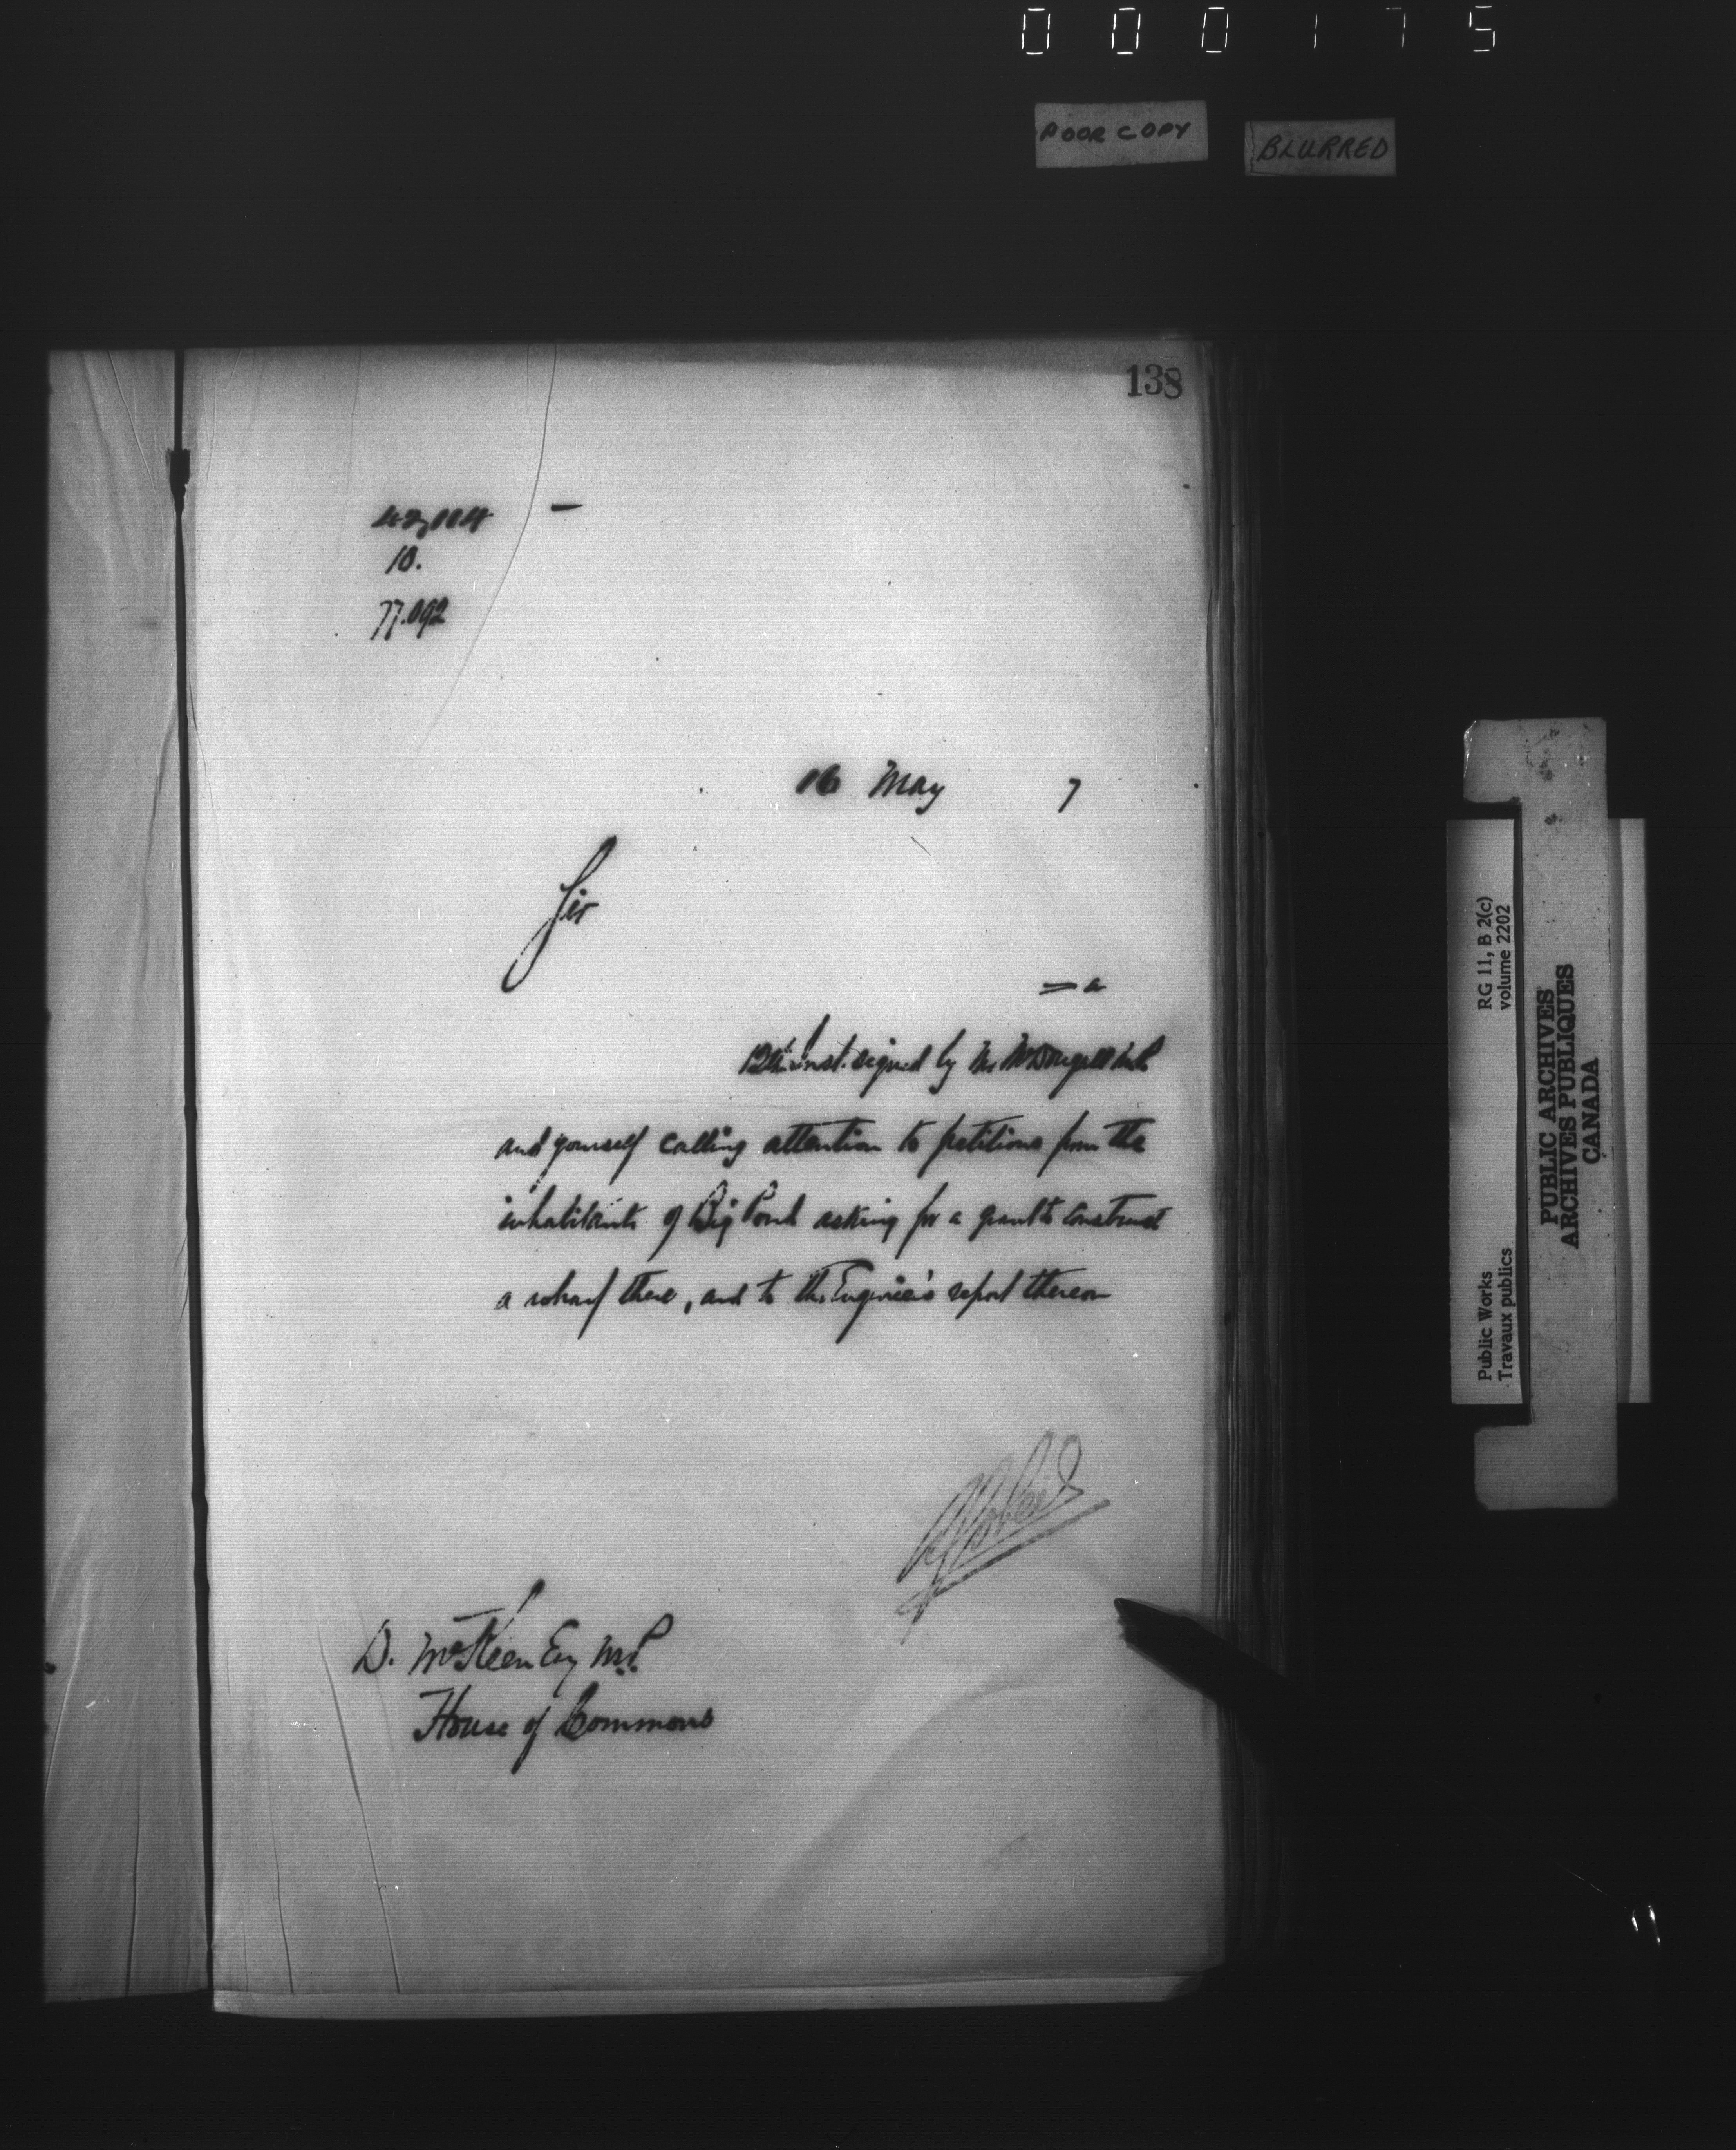 000175
POOR COPY
BLURRED
138
10.
77.092
16 May 7
Sir
a
12th inst. signed by Mr McDougall M.P.
and yourself calling attention to petitions from the
inhabitants of Big Pond asking for a grant to construct
a wharf there, and to the Engineer's report thereon
D. McKeen Esq M.P.
House of Commons
RG 11, B 2(c)
volume 2202
Public Works
Travaux publics
PUBLIC ARCHIVES
ARCHIVES PUBLIQUES
CANADA